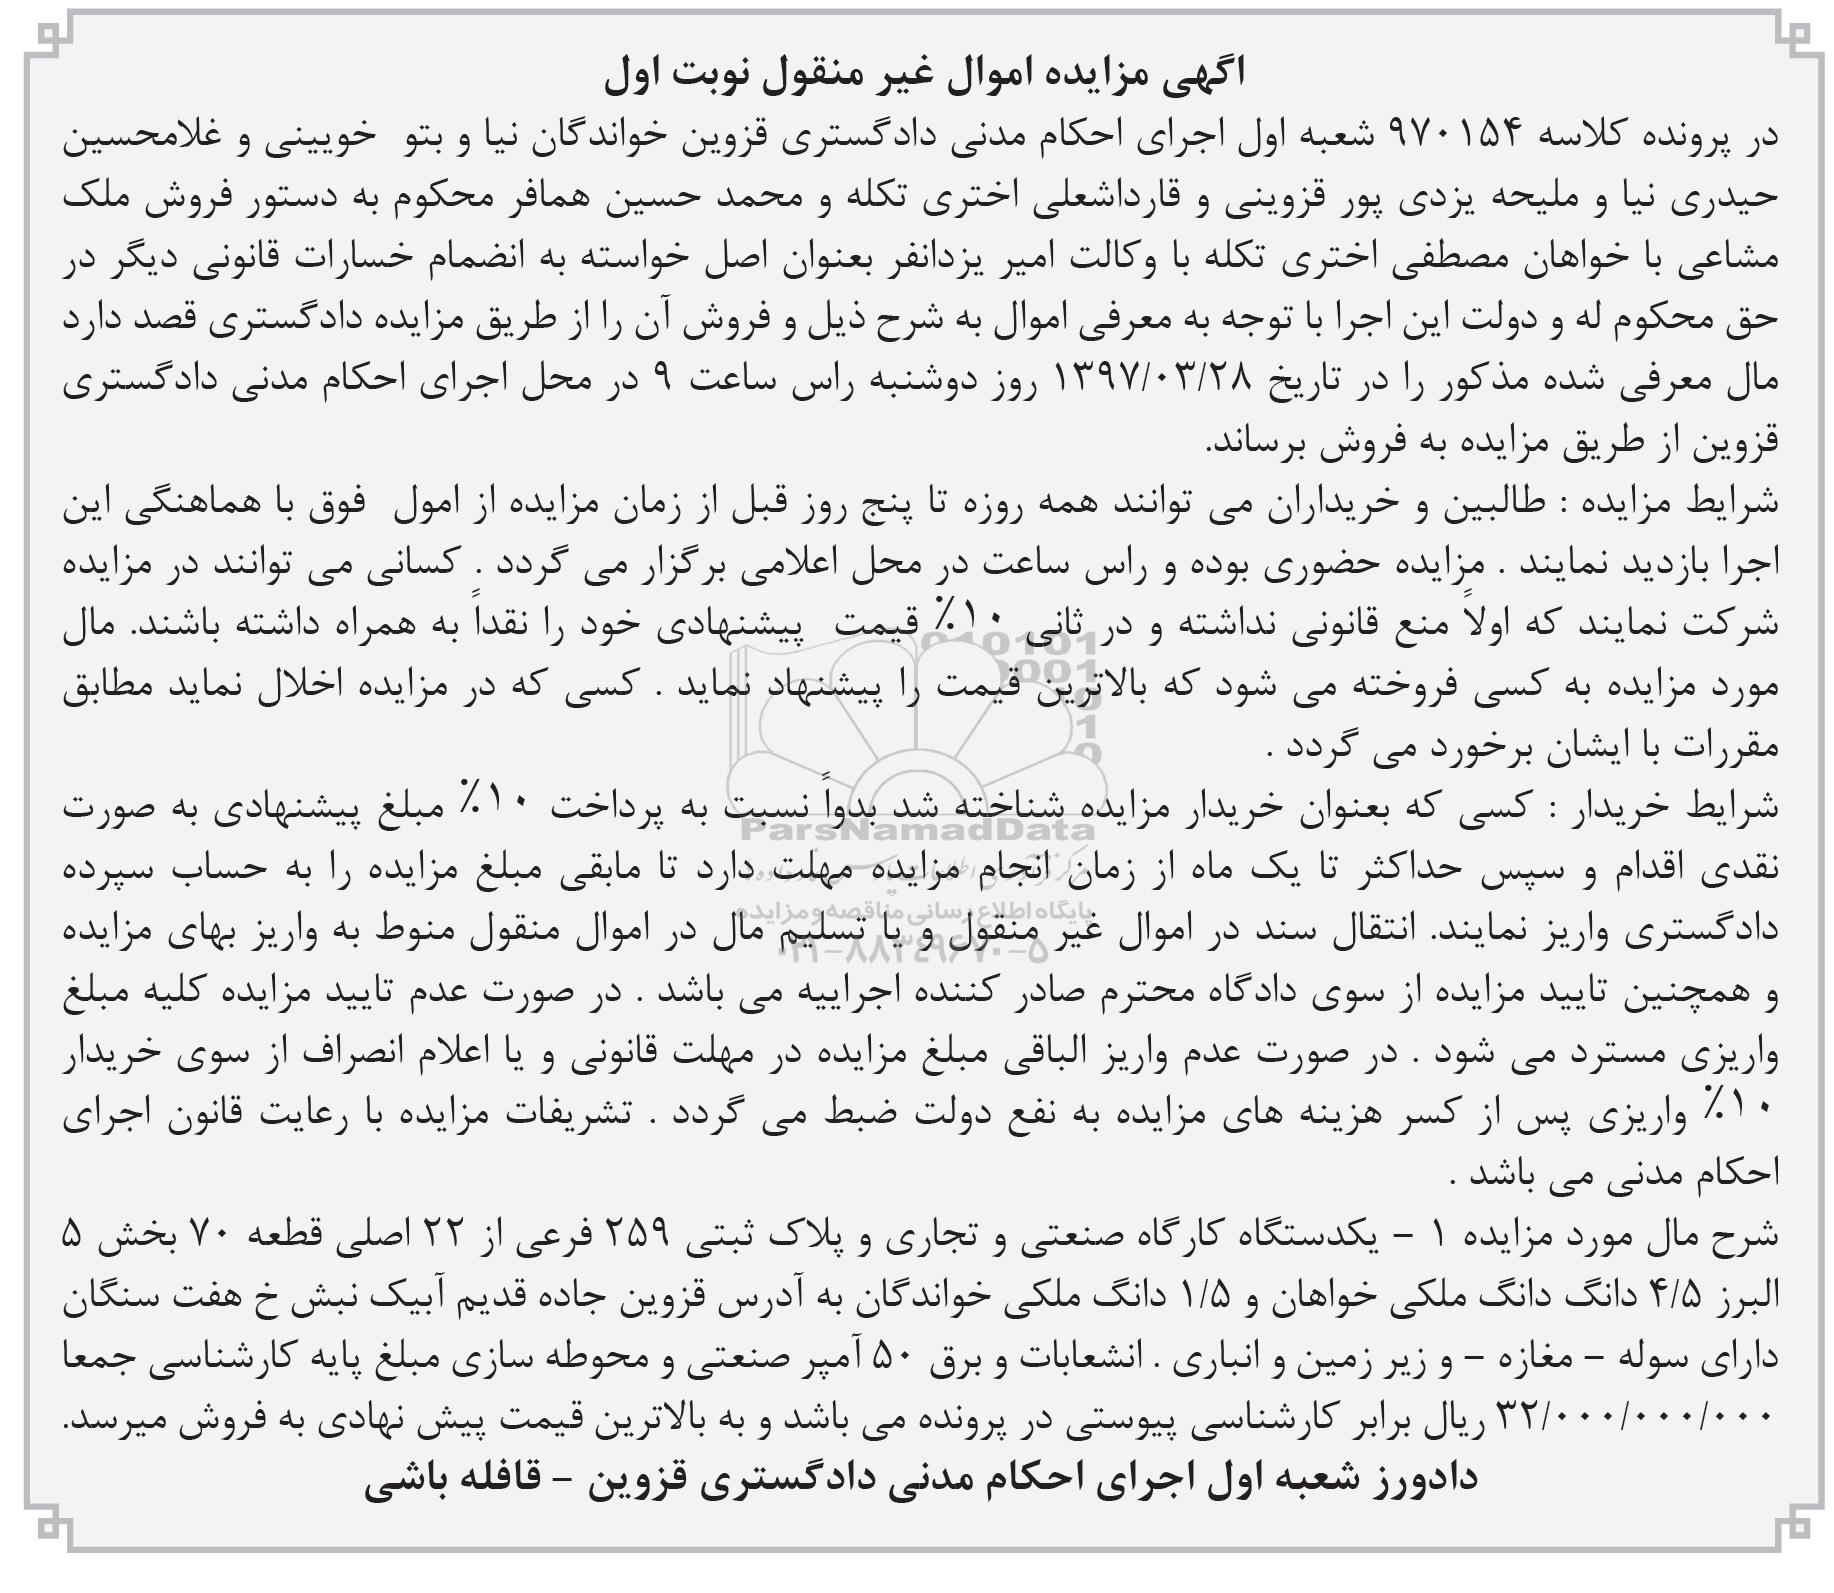 اگهی مزایده اموال غیر منقول نوبت اول
در پرونده کلاسه ۹۷۰۱۵۴ شعبه اول اجرای احکام مدنی دادگستری قزوین خواندگان نیا و بتو خویینی و غلامحسین
حیدری نیا و ملیحه یزدی پور قزوینی و قارداشعلی اختری تکله و محمد حسین همافر محکوم به دستور فروش ملک
مشاعی با خواهان مصطفی اختری تکله با وکالت امیر یزدانفر بعنوان اصل خواسته به انضمام خسارات قانونی دیگر در
حق محکوم له و دولت این اجرا با توجه به معرفی اموال به شرح ذیل و فروش آن را از طریق مزایده دادگستری قصد دارد
مال معرفی شده مذکور را در تاریخ ۱۳۹۷/۰۳/۲۸ روز دوشنبه راس ساعت ۹ در محل اجرای احکام مدنی دادگستری
قزوین از طریق مزایده به فروش برساند.
شرایط مزایده : طالبین و خریداران می توانند همه روزه تا پنج روز قبل از زمان مزایده از امول فوق با هماهنگی این
اجرا بازدید نمایند . مزایده حضوری بوده و راس ساعت در محل اعلامی برگزار می گردد . کسانی می توانند در مزایده
شرکت نمایند که اولاً منع قانونی نداشته و در ثانی ۱۰٪ قیمت پیشنهادی خود را نقداً به همراه داشته باشند. مال
مورد مزایده به کسی فروخته می شود که بالاترین قیمت را پیشنهاد نماید . کسی که در مزایده اخلال نماید مطابق
مقررات با ایشان برخورد می گردد .
شرایط خریدار : کسی که بعنوان خریدار مزایده شناخته شد بدواً نسبت به پرداخت ۱۰٪ مبلغ پیشنهادی به صورت
نقدی اقدام و سپس حداکثر تا یک ماه از زمان انجام مزایده مهلت دارد تا مابقی مبلغ مزایده را به حساب سپرده
دادگستری واریز نمایند. انتقال سند در اموال غیر منقول و یا تسلیم مال در اموال منقول منوط به واریز بهای مزایده
و همچنین تایید مزایده از سوی دادگاه محترم صادر کننده اجراییه می باشد . در صورت عدم تایید مزایده کلیه مبلغ
واریزی مسترد می شود . در صورت عدم واریز الباقی مبلغ مزایده در مهلت قانونی و یا اعلام انصراف از سوی خریدار
۱۰٪ واریزی پس از کسر هزینه های مزایده به نفع دولت ضبط می گردد . تشریفات مزایده با رعایت قانون اجرای
احکام مدنی می باشد .
شرح مال مورد مزایده ۱ – یکدستگاه کارگاه صنعتی و تجاری و پلاک ثبتی ۲۵۹ فرعی از ۲۲ اصلی قطعه ۷۰ بخش ۵
البرز ۴/۵ دانگ دانگ ملکی خواهان و ۱/۵ دانگ ملکی خواندگان به آدرس قزوین جاده قدیم آبیک نبش خ هفت سنگان
دارای سوله – مغازه – و زیر زمین و انباری . انشعابات و برق ۵۰ آمپر صنعتی و محوطه سازی مبلغ پایه کارشناسی جمعا
۳۲/۰۰۰/۰۰۰/۰۰۰ ریال برابر کارشناسی پیوستی در پرونده می باشد و به بالاترین قیمت پیش نهادی به فروش میرسد.
دادورز شعبه اول اجرای احکام مدنی دادگستری قزوین – قافله باشی
ParsNamadData
پایگاه اطلاع رسانی مناقصه و مزایده
۰۲۱-۸۸۳۴۹۶۷۰-۵